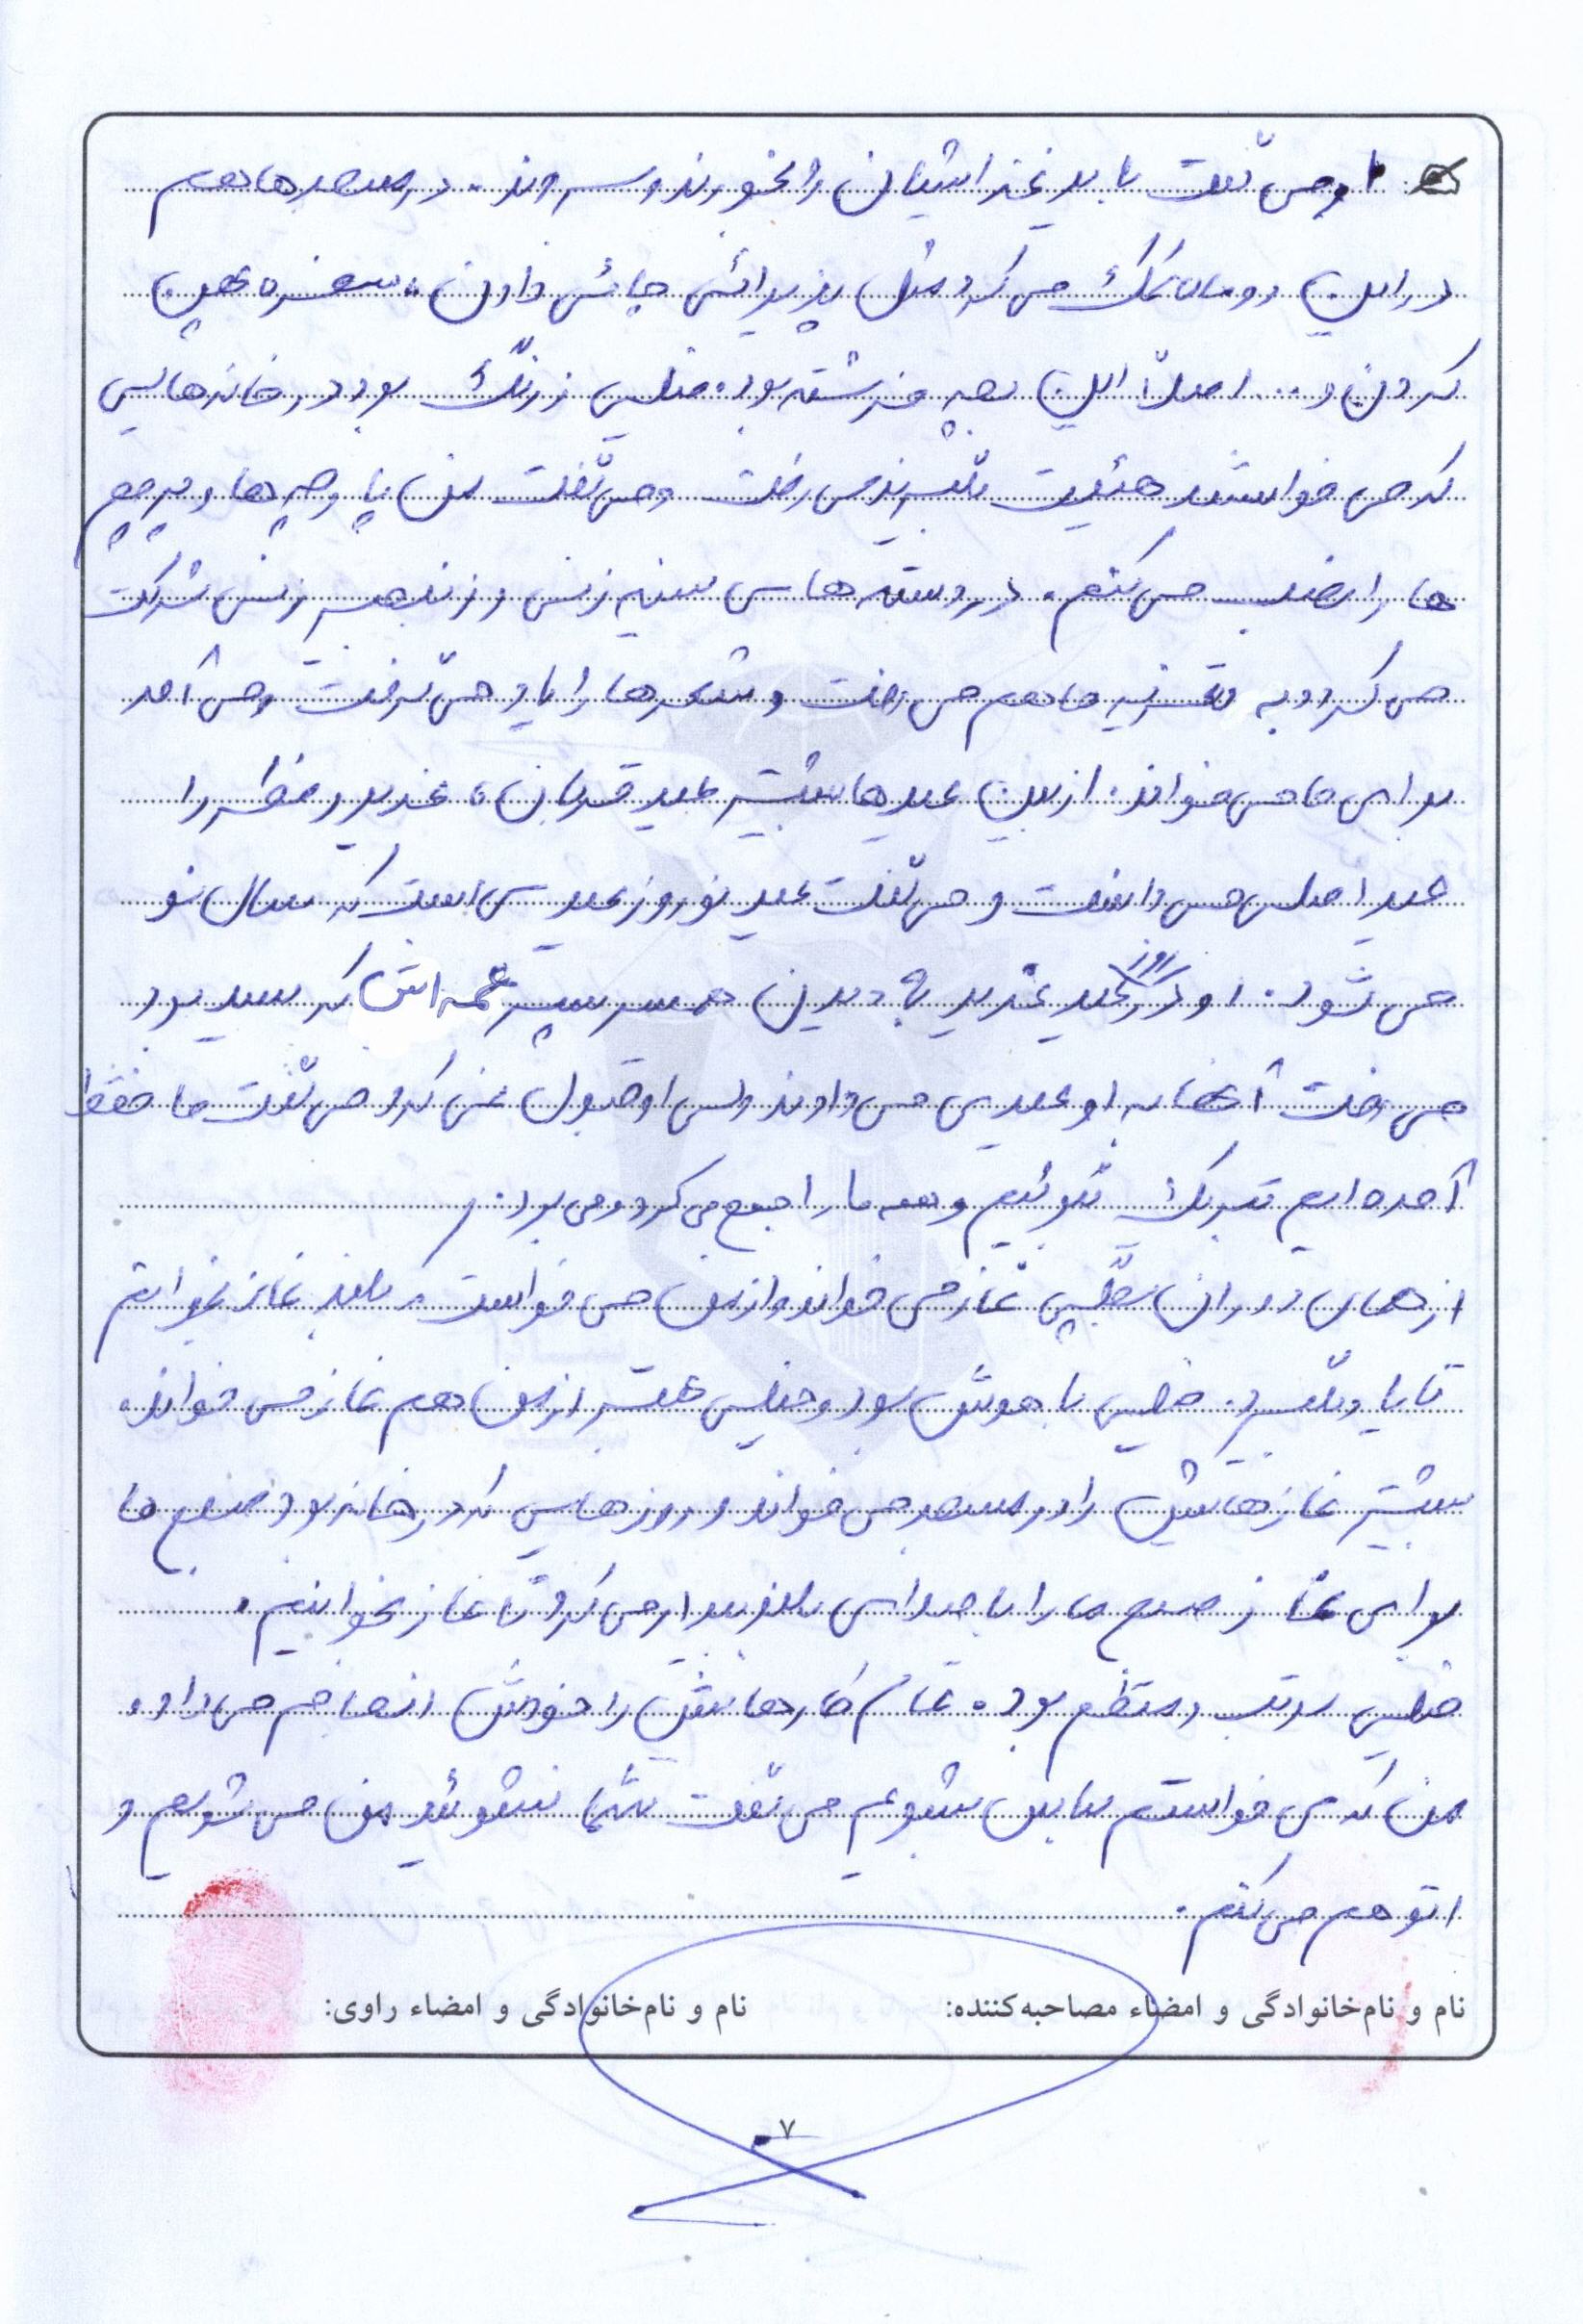 او می گفت باید غذایشان را بخورند و بروند. در مسجد ها هم
در این دو ماه کمک می کرد مثل پذیرائی چائی دادن، سفره پهن
کردن و ... اصلاً این بچه فرشته بود. خیلی زرنگ بود در خانه هایی
که می خواستند هیئت بگیرند می رفت و می گفت من پارچه ها و پرچم
ها را نصب می کنم. در دسته های سینه زنی و زنجیر زنی شرکت
می کرد و به تعزیه ها هم می رفت و شعرها را یاد می گرفت و می آمد
برای ما می خواند. از بین عیدها بیشتر عید قربان، غدیر و فطر را
عید اصلی می دانست و می گفت عید نوروز عیدی است که سال نو
می شود. او در روز عید غدیر به دیدن همسر پسر عمه اش که سید بود
می رفت آنها به او عیدی می دادند ولی او قبول نمی کرد و می گفت ما فقط
آمده ایم تبریک بگوئیم و همه ما را جمع می کرد و می برد.
از همان دوران بچگی نماز می خواند و از من می خواست که بلند نماز بخوانم
تا یاد بگیرد. خیلی با هوش بود و خیلی بهتر از من هم نماز می خواند.
بیشتر نمازهایش را در مسجد می خواند و روزهایی که در خانه بود صبح ها
برای نماز صبح ما را با صدای بلند بیدار می کرد تا نماز بخوانیم.
خیلی مرتب و منظم بود. تمام کارهایش را خودش انجام می داد.
من که می خواستم لباس بشویم می گفت شما نشوئید من می شویم و
اتو هم می کنم.
نام و نام‌خانوادگی و امضاء مصاحبه‌کننده: نام و نام‌خانوادگی و امضاء راوی:
۷